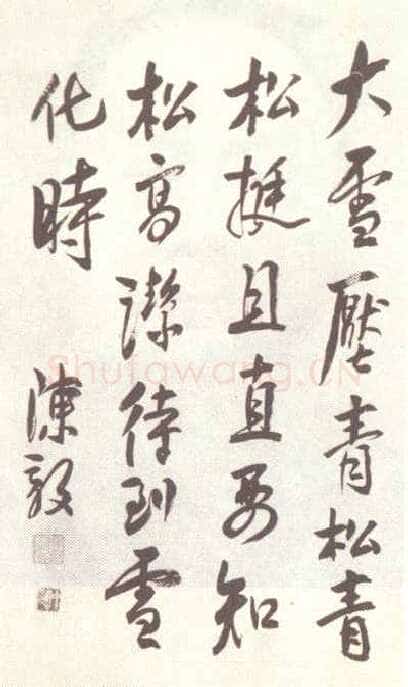 大雪壓青松青
松挺且直要知
松高潔待到雪
化時
陳毅
Shufawang.CN